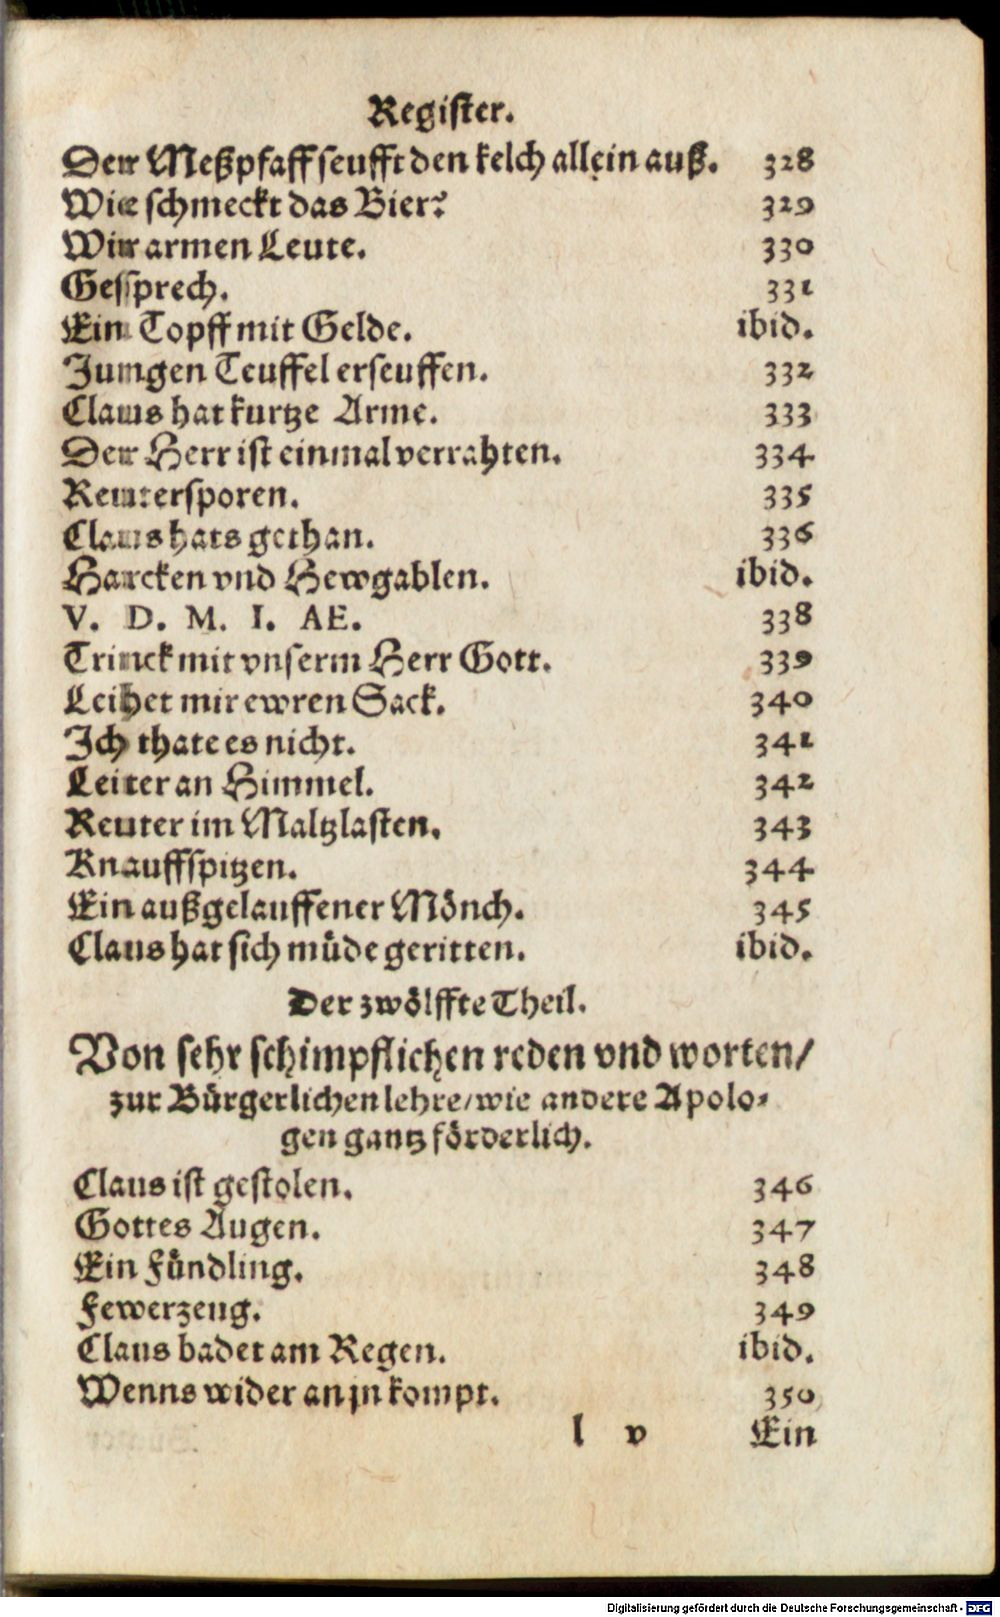 Register.
Der Meßpfaff seufft den kelch allein auß. 328
Wie schmeckt das Bier? 329
Wir armen Leute. 330
Gesprech. 331
Ein Topff mit Gelde. ibid.
Jungen Teuffel erseuffen. 332
Claus hat kurtze Arme. 333
Der Herr ist einmal verrahten. 334
Reutersporen. 335
Claus hats gethan. 336
Harcken vnd Hewgablen. ibid.
V. D. M. I. AE. 338
Trinck mit vnserm Herr Gott. 339
Leihet mir ewren Sack. 340
Ich thate es nicht. 341
Leiter an Himmel. 342
Reuter im Maltzkasten. 343
Knauffspitzen. 344
Ein außgelauffener Mönch. 345
Claus hat sich müde geritten. ibid.
Der zwölffte Theil.
Von sehr schimpflichen reden vnd worten/
zur Bürgerlichen lehre/wie andere Apolo-
gen gantz förderlich.
Claus ist gestolen. 346
Gottes Augen. 347
Ein Fündling. 348
Fewerzeug. 349
Claus badet am Regen. ibid.
Wenns wider an jn kompt. 350
l v Ein
Digitalisierung gefördert durch die Deutsche Forschungsgemeinschaft - DFG